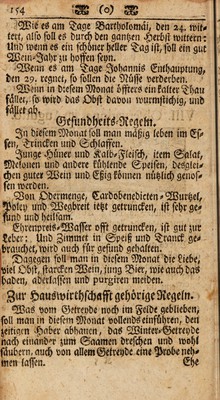 154 (o)
Wie es am Tage Bartholomäi, den 24. wit-
tert, also soll es durch den gantzen Herbst wittern;
Und wenn es ein schöner heller Tag ist, soll ein gut
Wein-Jahr zu hoffen seyn.
Wenn es am Tage Johannis Enthauptung,
den 29. regnet, so sollen die Nüsse verderben.
Wenn in diesem Monat öffters ein kalter Thau
fället, so wird das Obst davon wurmstichig, und
fället ab.
Gesundheits-Regeln.
In diesem Monat soll man mäßig leben im Es-
sen, Trincken und Schlaffen.
Junge Hüner und Kalb-Fleisch, item Salat,
Melonen und andere kühlende Speisen, desglei-
chen guter Wein und Eßig können nützlich genos-
sen werden.
Von Odermenge, Cardobenedicten-Wurtzel,
Poley und Wegbreit ietzt getruncken, ist sehr ge-
sund und heilsam.
Ehrenpreis-Wasser offt getruncken, ist gut zur
Leber: Und Zimmet in Speiß und Tranck ge-
brauchet, wird auch für gesund gehalten.
Dagegen soll man in diesem Monat die Liebe,
viel Obst, starcken Wein, jung Bier, wie auch das
baden, aderlassen und purgiren meiden.
Zur Hauswirthschafft gehörige Regeln.
Was vom Getreyde noch im Felde geblieben,
soll man in diesem Monat vollends einführen, den
zeitigen Haber abhauen, das Winter-Getreyde
nach einander zum Saamen dreschen und wohl
säubern, auch von allem Getreyde eine Probe neh-
men lassen.
Ehe